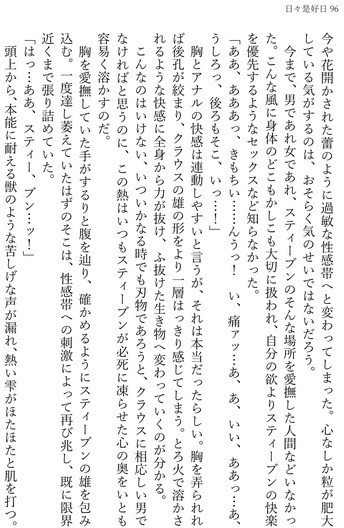 日々是好日 96
今や花開かされた蕾のように過敏な性感帯へと変わってしまった。心なしか粒が肥大
している気がするのは、おそらく気のせいではないだろう。
今まで、男であれ女であれ、スティーブンのそんな場所を愛撫した人間などいなかっ
た。こんな風に身体のどこもかしこも大切に扱われ、自分の欲よりスティーブンの快楽
を優先するようなセックスなど知らなかった。
「ああ、あああっ、きもちい……んうっ！　い、痛アッ…あ、あ、いい、ああっ…あ、
うしろっ、後ろもそこ、いっ…！」
胸とアナルの快感は連動しやすいと言うが、それは本当だったらしい。胸を弄られれ
ば後孔が絞まり、クラウスの雄の形をより一層はっきり感じてしまう。とろ火で溶かさ
れるような快感に全身から力が抜け、ふ抜けた生き物へ変わっていくのが分かる。
こんなのはいけない、いついかなる時でも刃物であろうと、クラウスに相応しい男で
なければと思うのに、この熱はいつもスティーブンが必死に凍らせた心の奥をいとも
容易く溶かすのだ。
胸を愛撫していた手がするりと腹を辿り、確かめるようにスティーブンの雄を包み
込む。一度達し萎えていたはずのそこは、性感帯への刺激によって再び兆し、既に限界
近くまで張り詰めていた。
「はっ…ああ、スティー、ブン…ッ！」
頭上から、本能に耐える獣のような苦しげな声が漏れ、熱い雫がほたほたと肌を打つ。